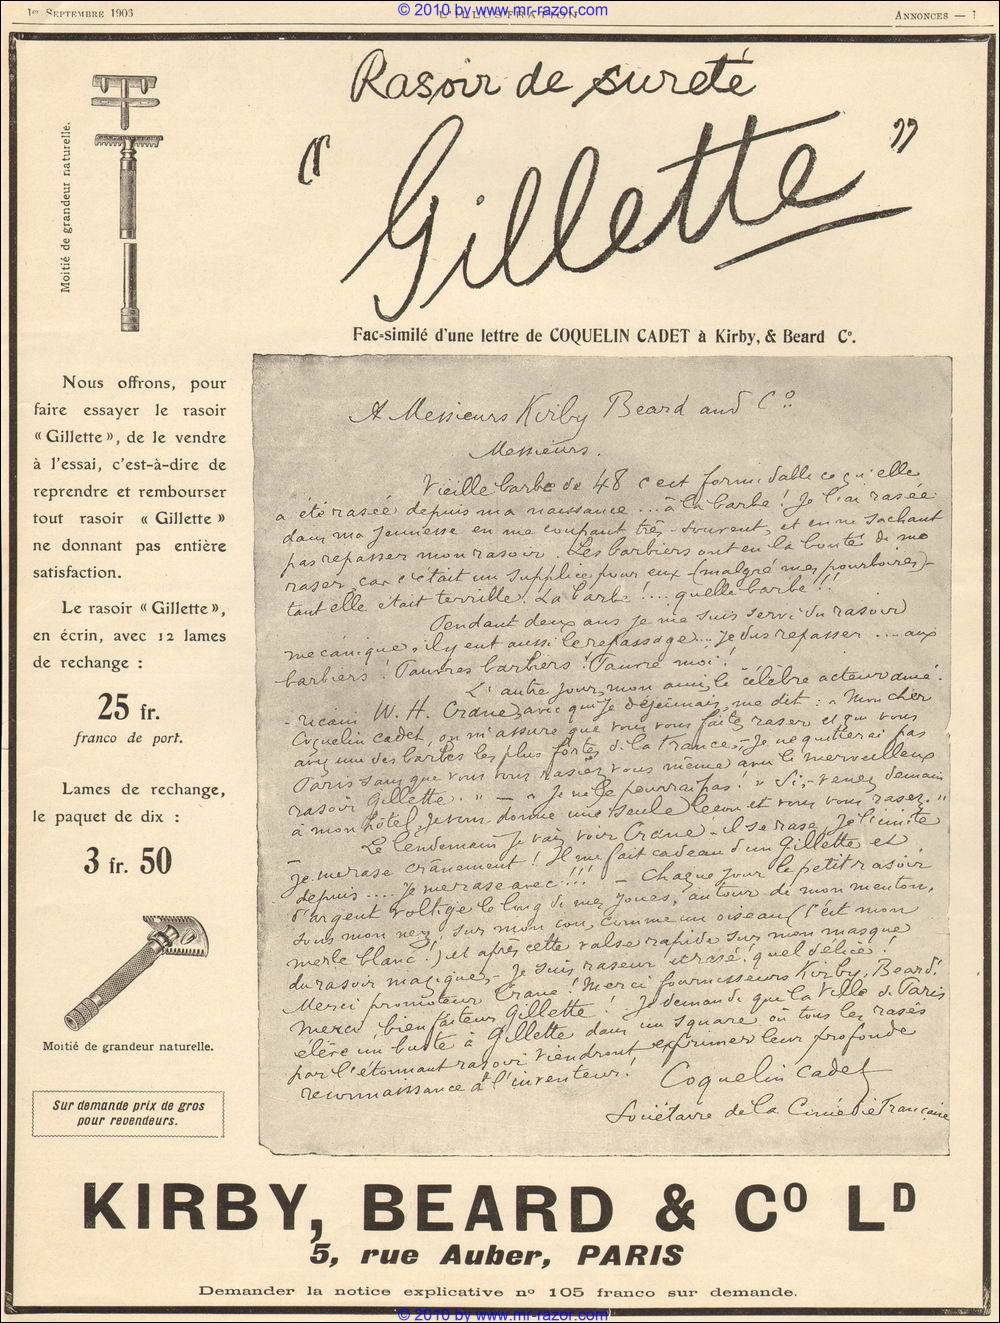 © 2010 by www.mr-razor.com
1er SEPTEMBRE 1906
L'ILLUSTRATION
ANNONCES — 1
Rasoir de sureté
"Gillette"
Moitié de grandeur naturelle.
Fac-similé d'une lettre de COQUELIN CADET à Kirby, & Beard Co.
Nous offrons, pour
faire essayer le rasoir
« Gillette », de le vendre
à l'essai, c'est-à-dire de
reprendre et rembourser
tout rasoir « Gillette »
ne donnant pas entière
satisfaction.
Le rasoir « Gillette »,
en écrin, avec 12 lames
de rechange :
25 fr.
franco de port.
Lames de rechange,
le paquet de dix :
3 fr. 50
Moitié de grandeur naturelle.
Sur demande prix de gros
pour revendeurs.
A Messieurs Kirby Beard and Co.
Messieurs.
Vieille barbe de 48 c'est formidable ce qu'elle
a été rasée depuis ma naissance ... à la barbe ! Je l'ai rasée
dans ma jeunesse en me coupant très-souvent, et en ne sachant
pas repasser mon rasoir. Les barbiers ont eu la bonté de me
raser, car c'était un supplice pour eux (malgré mes pourboires)-
tant elle était terrible. La barbe !... quelle barbe !!
Pendant deux ans je me suis servi du rasoir
mécanique, il y eut aussi le repassage... Je dus repasser ... aux
barbiers ! Pauvres barbiers ! Pauvre moi !
L'autre jour, mon ami, le célèbre acteur amé-
-ricain W. H. Crane, avec qui je déjeunais, me dit : « Mon cher
Coquelin cadet, on m'assure que vous vous faites raser et que vous
avez une des barbes les plus fortes de la France,- Je ne quitterai pas
Paris sans que vous vous rasiez vous même avec le merveilleux
rasoir Gillette. " — « Je ne le pourrai pas ! " « Si,- venez demain
à mon hôtel, je vous donne une seule leçon et vous vous rasez. "
Le lendemain je vais voir Crane - il se rase, je l'imite
Je me rase crânement ! Il me fait cadeau d'un Gillette et
depuis .... Je me rase avec !!! - Chaque jour le petit rasoir
d'argent voltige le long de mes joues, autour de mon menton,
sous mon nez, sur mon cou, comme un oiseau (C'est mon
merle blanc !) et après cette valse rapide sur mon masque
du rasoir magique,- Je suis raseur et rasé ! quel délice !
Merci promoteur Crane ! Merci fournisseurs Kirby, Beard !
Merci bienfaiteur Gillette ! Je demande que la Ville de Paris
élève un buste à Gillette dans un square où tous les rasés
par l'étonnant rasoir viendront exprimer leur profonde
reconnaissance à l'inventeur !
Coquelin cadet
Sociétaire de la Comédie Française
KIRBY, BEARD & Co LD
5, rue Auber, PARIS
Demander la notice explicative no 105 franco sur demande.
© 2010 by www.mr-razor.com